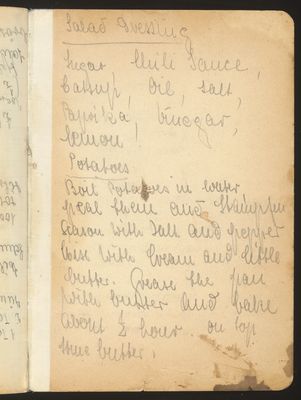 Salad Dressing
Sugar Chili Sauce,
Catsup, Oil, salt,
Paprika, Vinegar,
Lemon
Potatoes
Boil Potatoes in water
peal them and
season with Salt and pepper
with Cream and little
butter. Grease the pan
with butter and bake
about ½ hour. on top
some butter.